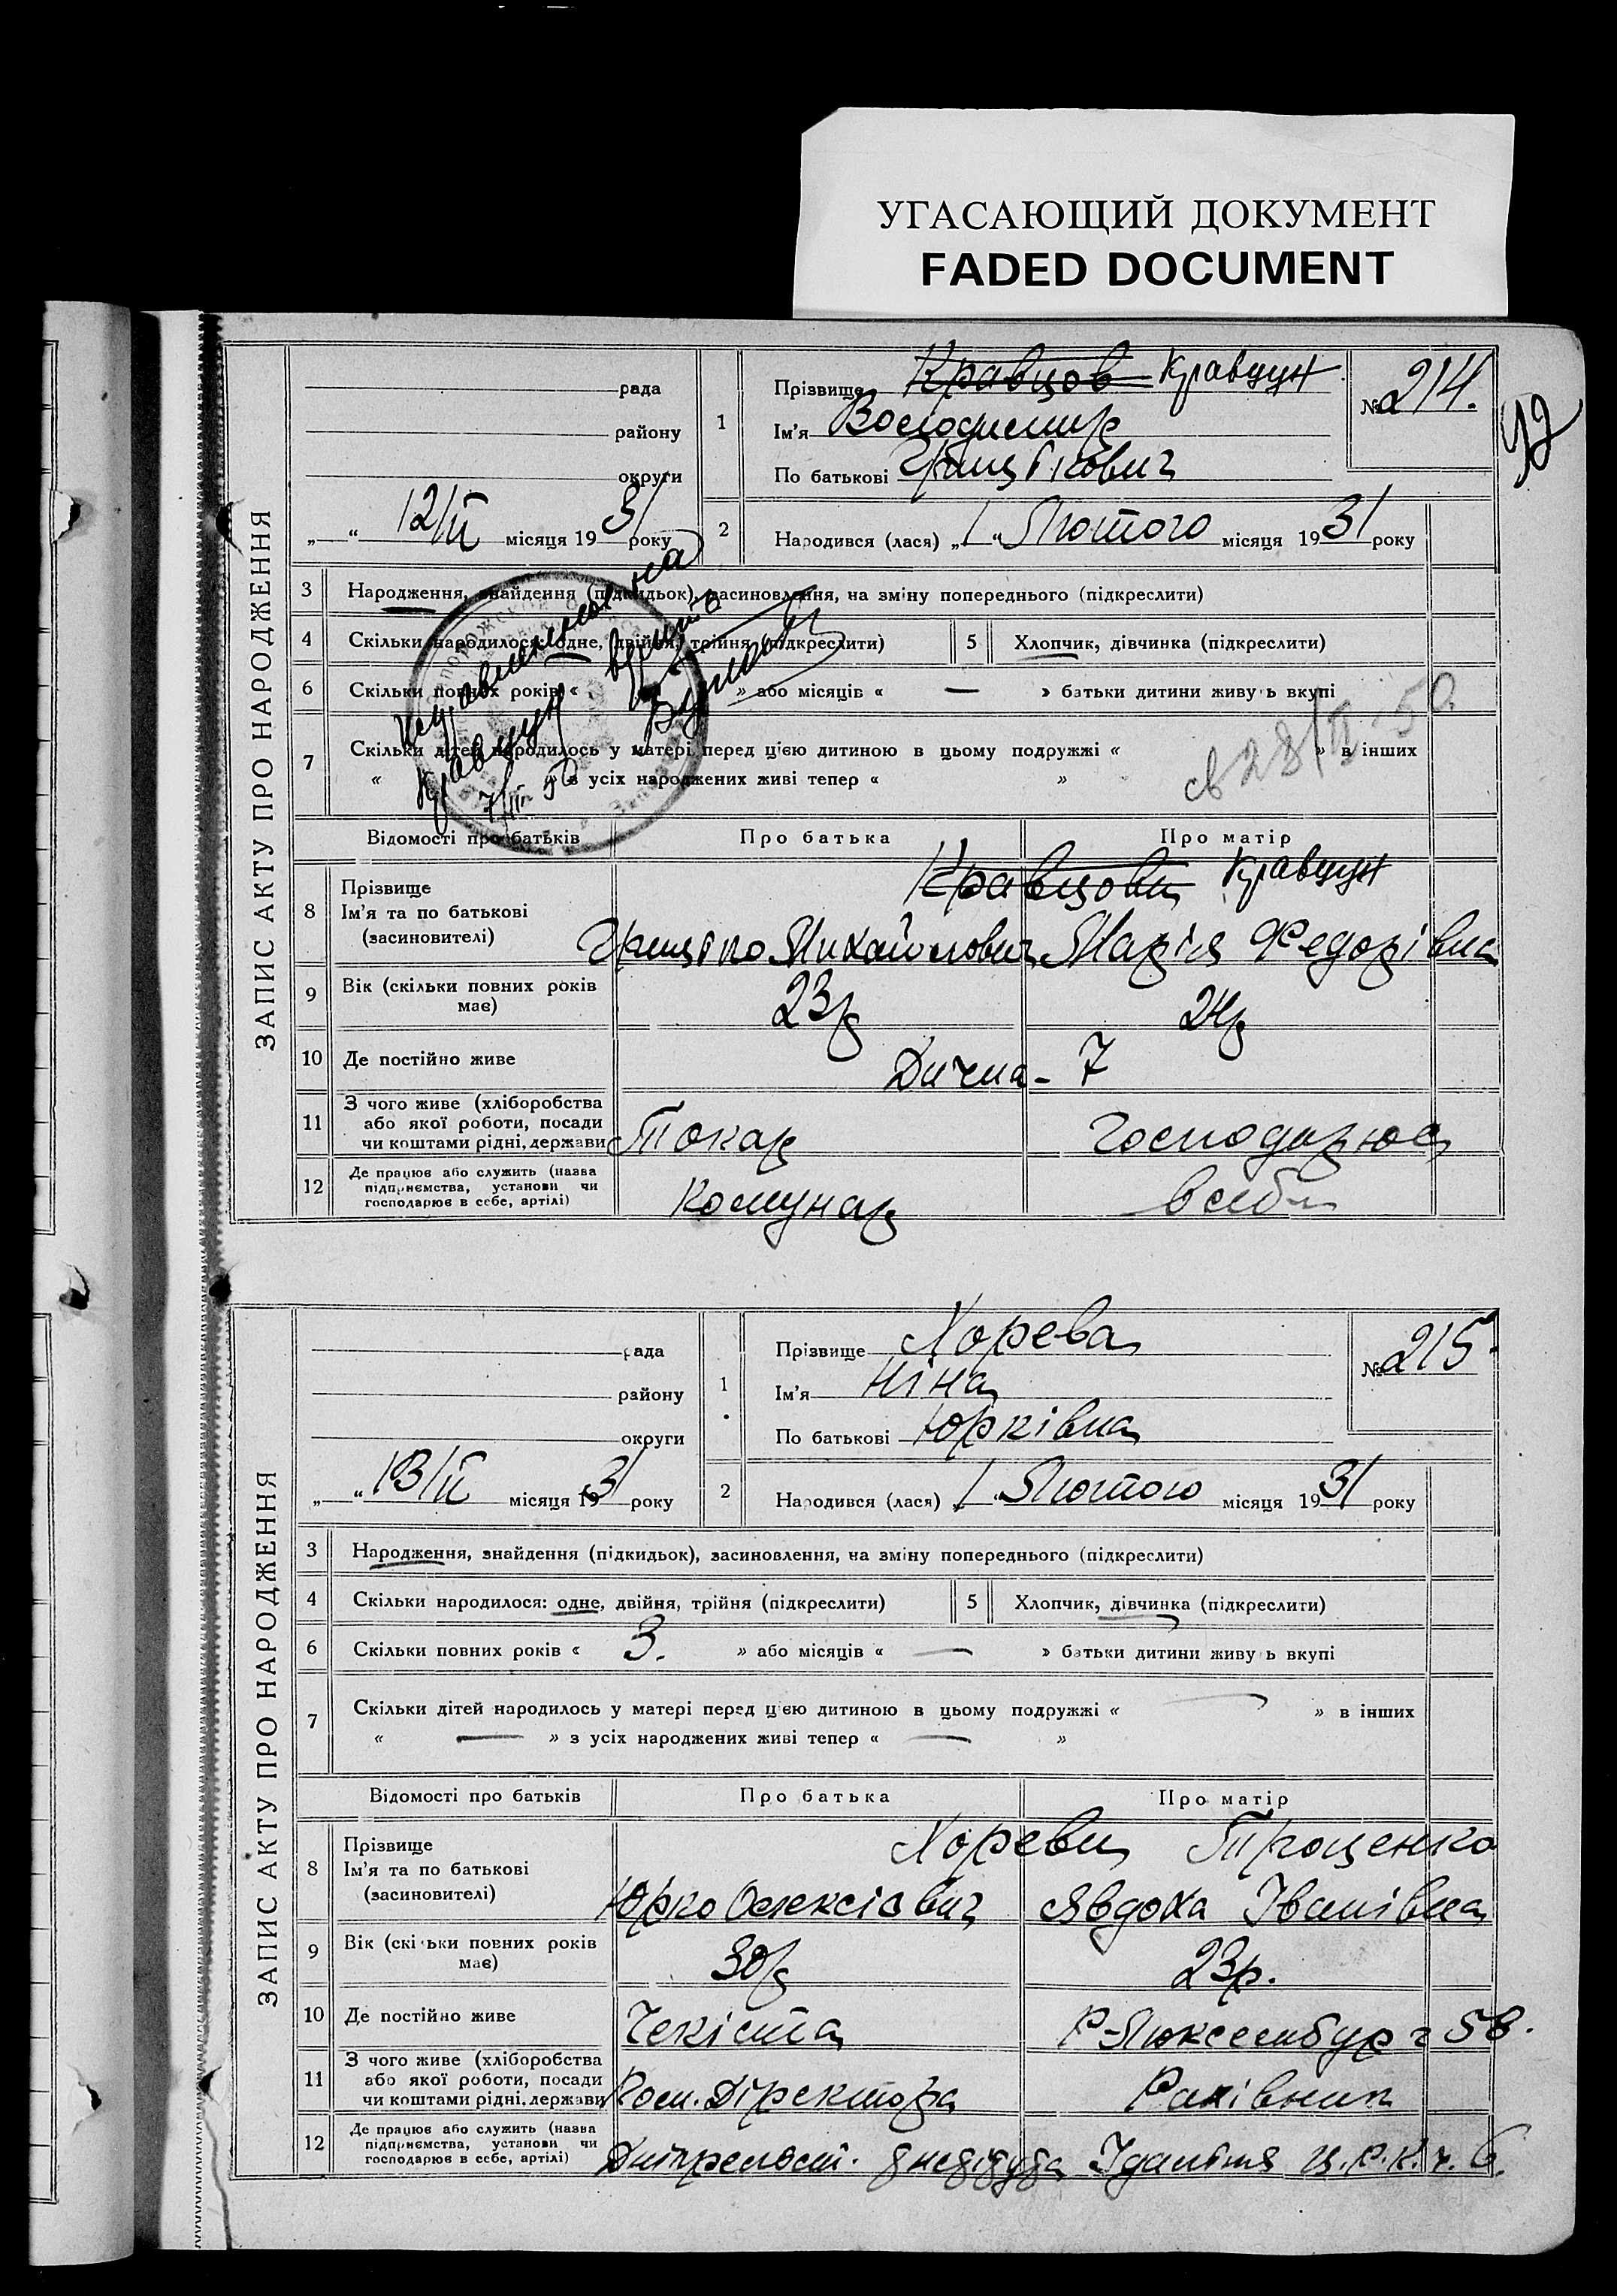 УГАСАЮЩИЙ ДОКУМЕНТ
FADED DOCUMENT
ЗАПИС АКТУ ПРО НАРОДЖЕННЯ
рада
району
округи
„ “ 12/II місяця 1931 року
1
Прізвище Кравцов Кравцун
Ім'я Володимир
По батькові Грицькович
№ 214.
92
2
Народився (лася) „1“ Лютого місяця 1931 року
3 Народження, знайдення (підкидьок), засиновлення, на зміну попереднього (підкреслити)
4 Скільки народилося: одне, двійня, трійня (підкреслити) 5 Хлопчик, дівчинка (підкреслити)
6 Скільки повних років « » або місяців « — » батьки дитини живуть вкупі
7 Скільки дітей народилось у матері перед цією дитиною в цьому подружжі « » в інших
« » з усіх народжених живі тепер « »
на
Кравцун
7/II 50
св 28/II-50
Відомості про батьків Про батька Про матір
8 Прізвище Кравцови Кравцун
Ім'я та по батькові
(засновителі) Грицько Михайлович Марія Федорівна
9 Вік (скільки повних років має) 23р 24р
10 Де постійно живе Дична - 7
11 З чого живе (хліборобства
або якої роботи, посади
чи коштами рідні, держави Токар Господарює
12 Де працює або служить (назва
підприємства, установи чи
господарює в себе, артілі) Комунар в себе
ЗАПИС АКТУ ПРО НАРОДЖЕННЯ
рада
району
округи
„ “ 13/II місяця 1931 року
1
Прізвище Хорева
Ім'я Ніна
По батькові Юрківна
№ 215.
2
Народився (лася) „1“ Лютого місяця 1931 року
3 Народження, знайдення (підкидьок), засиновлення, на зміну попереднього (підкреслити)
4 Скільки народилося: одне, двійня, трійня (підкреслити) 5 Хлопчик, дівчинка (підкреслити)
6 Скільки повних років « 3. » або місяців « — » батьки дитини живуть вкупі
7 Скільки дітей народилось у матері перед цією дитиною в цьому подружжі « — » в інших
« — » з усіх народжених живі тепер « — »
Відомості про батьків Про батька Про матір
8 Прізвище Хореви Троценко
Ім'я та по батькові
(засиновителі) Юрко Олексієвич Явдоха Іванівна
9 Вік (скільки повних років має) 30р 23р.
10 Де постійно живе Чекіста Р-Люксембург 58.
11 З чого живе (хліборобства
або якої роботи, посади
чи коштами рідні, держави Пом. Діректора Рахівник
12 Де працює або служить (назва
підприємства, установи чи
господарює в себе, артілі) Їдальня Ц.Р.К. ч. 6.